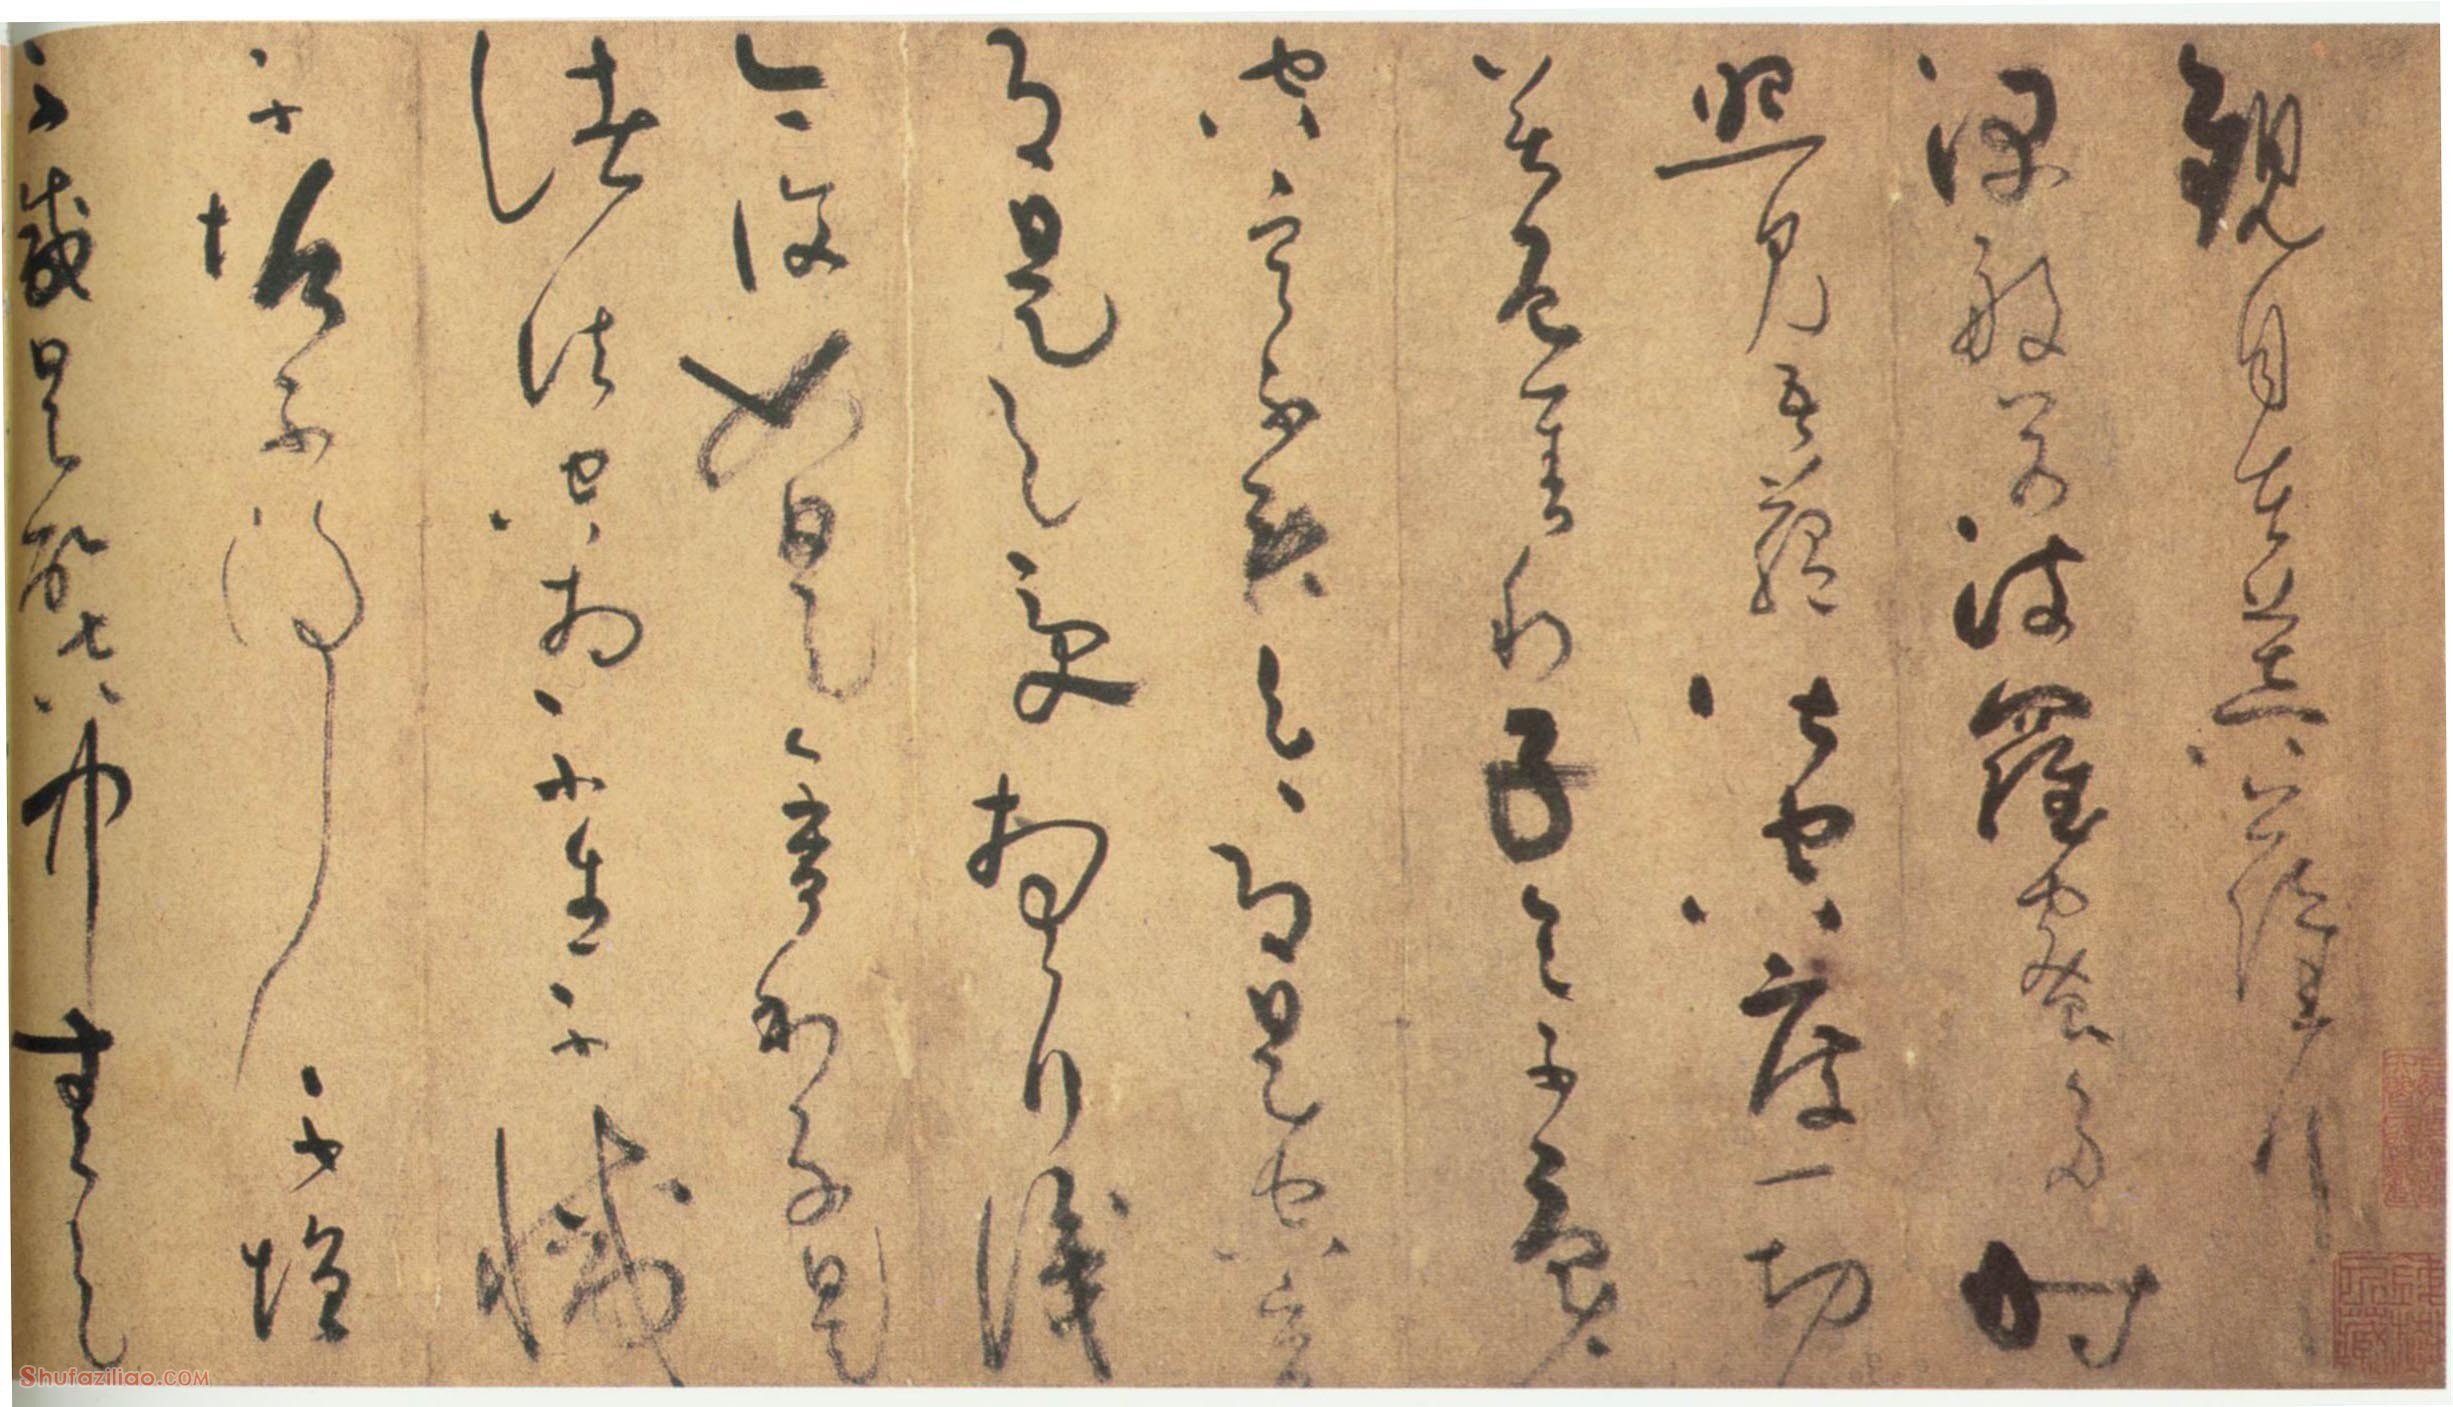 觀自在菩薩行
深般若波羅蜜多時
照見五蘊皆空度一切
苦厄舍利子色不異
空空不異色色即是空空
即是色受想行識
亦復如是舍利子是
諸法空相不生不滅
不垢不淨不增
不減是故空中無色
Shufaziliao.com